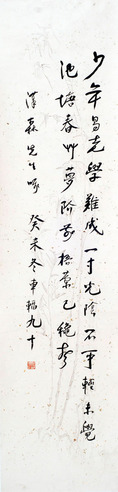 少年易老學難成一寸光陰不可輕未覺
池塘春艸夢階前梧葉已穐聲
漢森先生
癸未冬車輻九十